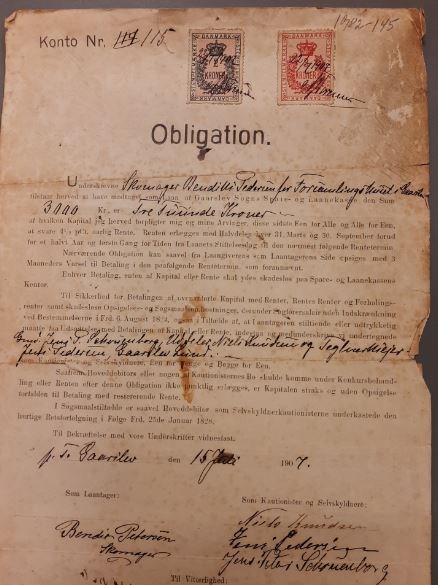 1982-145
Konto Nr. 147/115
DANMARK
DANMARK
KRONER
KRONER
Obligation.
Underskrevne Skomager Pedersen for Forsamlingshuset i Gaarslev
tilstaar herved at have modtaget som Laan af Gaarslev Sogns Spare- og Laanekasse den Sum
3000 Kr., er Tre Tusinde Kroner
af hvilken Kapital jeg herved forpligter mig og mine Arvinger, disse sidste Een for Alle og Alle for Een,
at svare 4½ pCt. aarlig Rente. Renten erlægges med Halvdelen hver 31. Marts og 30. September forud
for et halvt Aar og første Gang for Tiden fra Laanets Stiftelsesdag til den nærmest følgende Rentetermin.
Nærværende Obligation kan saavel fra Langiverens som Laantagerens Side opsiges med 3
Maaneders Varsel til Betaling i den paafølgende Rentetermin, som forannævnt.
Enhver Betaling, enten af Kapital eller Rente skal ydes skadesløs paa Spare- og Laanekassens
Kontor.
Til Sikkerhed for Betalingen af ovennævnte Kapital med Renter, Rentes Renter og Forhalings-
renter samt skadesløse Opsigelses- og Sagsomkostninger, derunder Sagførersalær
med Bestemmelserne i Frd. 6. August 1824, og som i Tilfælde af, at Laangiveren stiltiende eller udtrykkelig
Jens S. Schouenborg, Niels Knudsen og
Jens Pedersen, Gaarslev
som Kautionister og Selvskyldnere, Een for Begge og Begge for Een.
Saafremt Hoveddebitor eller nogen af Kautionisternes Bo skulde komme under Konkursbehand-
ling eller Renten efter denne Obligation ikke betimelig erlægges, er Kapitalen straks og uden Opsigelse
forfalden til Betaling med resterende Rente.
I Søgsmaalstilfælde er saavel Hoveddebitor som Selvskyldnerkautionisterne underkastede den
hurtige Retsforfølgning i Følge Frd. 25de Januar 1828.
Til Bekræftelse med vore Underskrifter vidnesfast.
p. T. Gaarslev den 15 Juli 1907.
Som Laantager:
Som Kautionister og Selvskyldnere:
Niels Knudsen
Bendix Petersen
Jens Pedersen
Skomager
Jens Schouenborg
Til Vitterlighed: